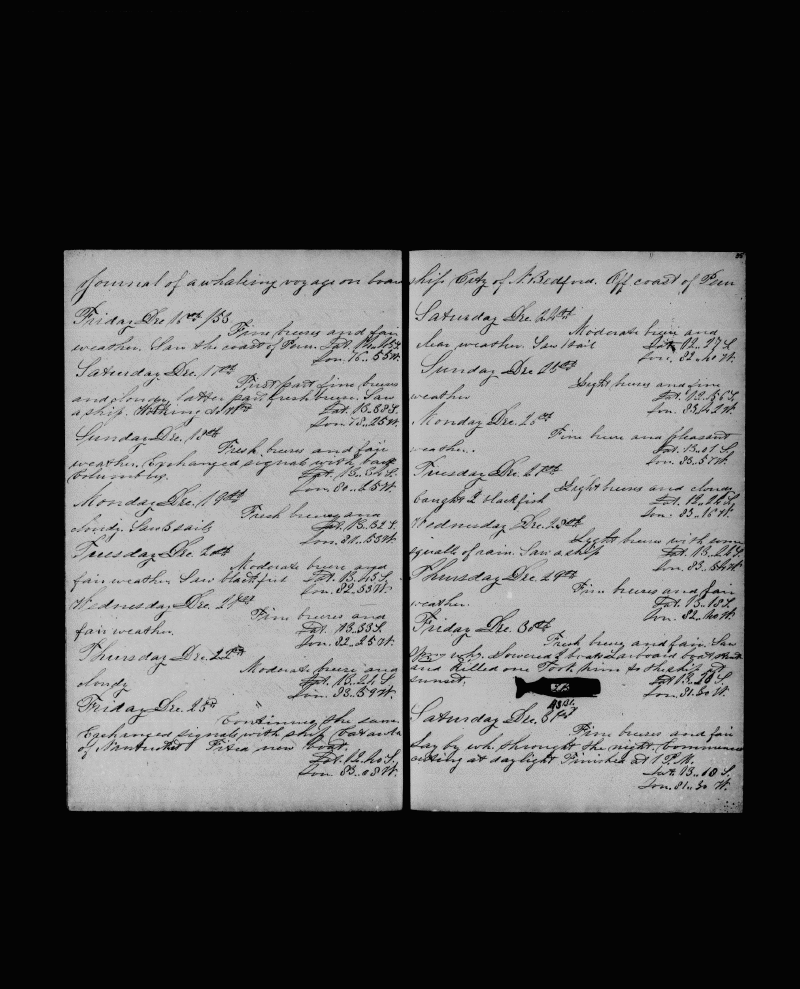 Journal of a whaling voyage on board
Friday Dec 16th /53
Fine breeses and fair
weather. Saw the coast of Peru. Lat. 14..45 S.
Lon. 76..55 W.
Saturday Dec. 17th
First part fine breeses
and cloudy, latter part fresh breese. Saw
a ship. Lat. 13.38 S.
Lon. 78..25 W.
Sunday Dec. 18th
Fresh breeses and fair
weather. Exchanged signals with bark
Columbus. Lat. 13..34 S.
Lon. 80..25 W.
Monday Dec. 19th
Fresh breeses and
cloudy. Saw 3 sails Lat. 13.32 S.
Lon. 81..53 W.
Tuesday Dec. 20th
Moderate breese and
fair weather Saw blackfish Lat. 13.43 S.
Lon. 82.33 W.
Wednesday Dec. 21st
Fine breeses and
fair weather. Lat. 13.33 S.
Lon. 82..25 W.
Thursday Dec. 22nd
Moderate breese and
cloudy Lat. 13.24 S.
Lon. 83.59 W.
Friday Dec. 23d
Continues the same.
Exchanged signals with ship
of Nantucket Fixed new boat.
Lat. 12.40 S.
Lon. 83..08 W.
ship City of N. Bedford. Off coast of Peru
Saturday Dec. 24th
Moderate breese and
clear weather. Saw 1 sail Lat. 12..27 S.
Lon. 82..40 W.
Sunday Dec. 25th
Light breeses and fine
weather Lat. 12.56 S.
Lon. 83.42 W.
Monday Dec. 26th
Fine breese and pleasant
weather. Lat. 13.07 S.
Lon. 83..57 W.
Tuesday Dec. 27th
Light breeses and cloudy
Caught 2 blackfish Lat. 12.24 S.
Lon. 83..16 W.
Wednesday Dec. 28th
Light breeses with some
squalls of rain. Saw a ship Lat. 13.26 S.
Lon. 83.34 W.
Thursday Dec. 29th
Fine breeses and fair
weather. Lat. 13.18 S.
Lon. 82..40 W.
Friday Dec. 30th
Fresh breeses and fair. Saw
whs. Lowered boats Larboard boat struck
and killed one Took him to the ship at
sunset. Lat 13.20 S.
Lon. 81.30 W.
Saturday Dec. 31st
Fine breeses and fair
Lay by wh. throught the night. Commenced
cutting at daylight Finished at 1 P.M.
Lat. 13..18 S.
Lon. 81..30 W.